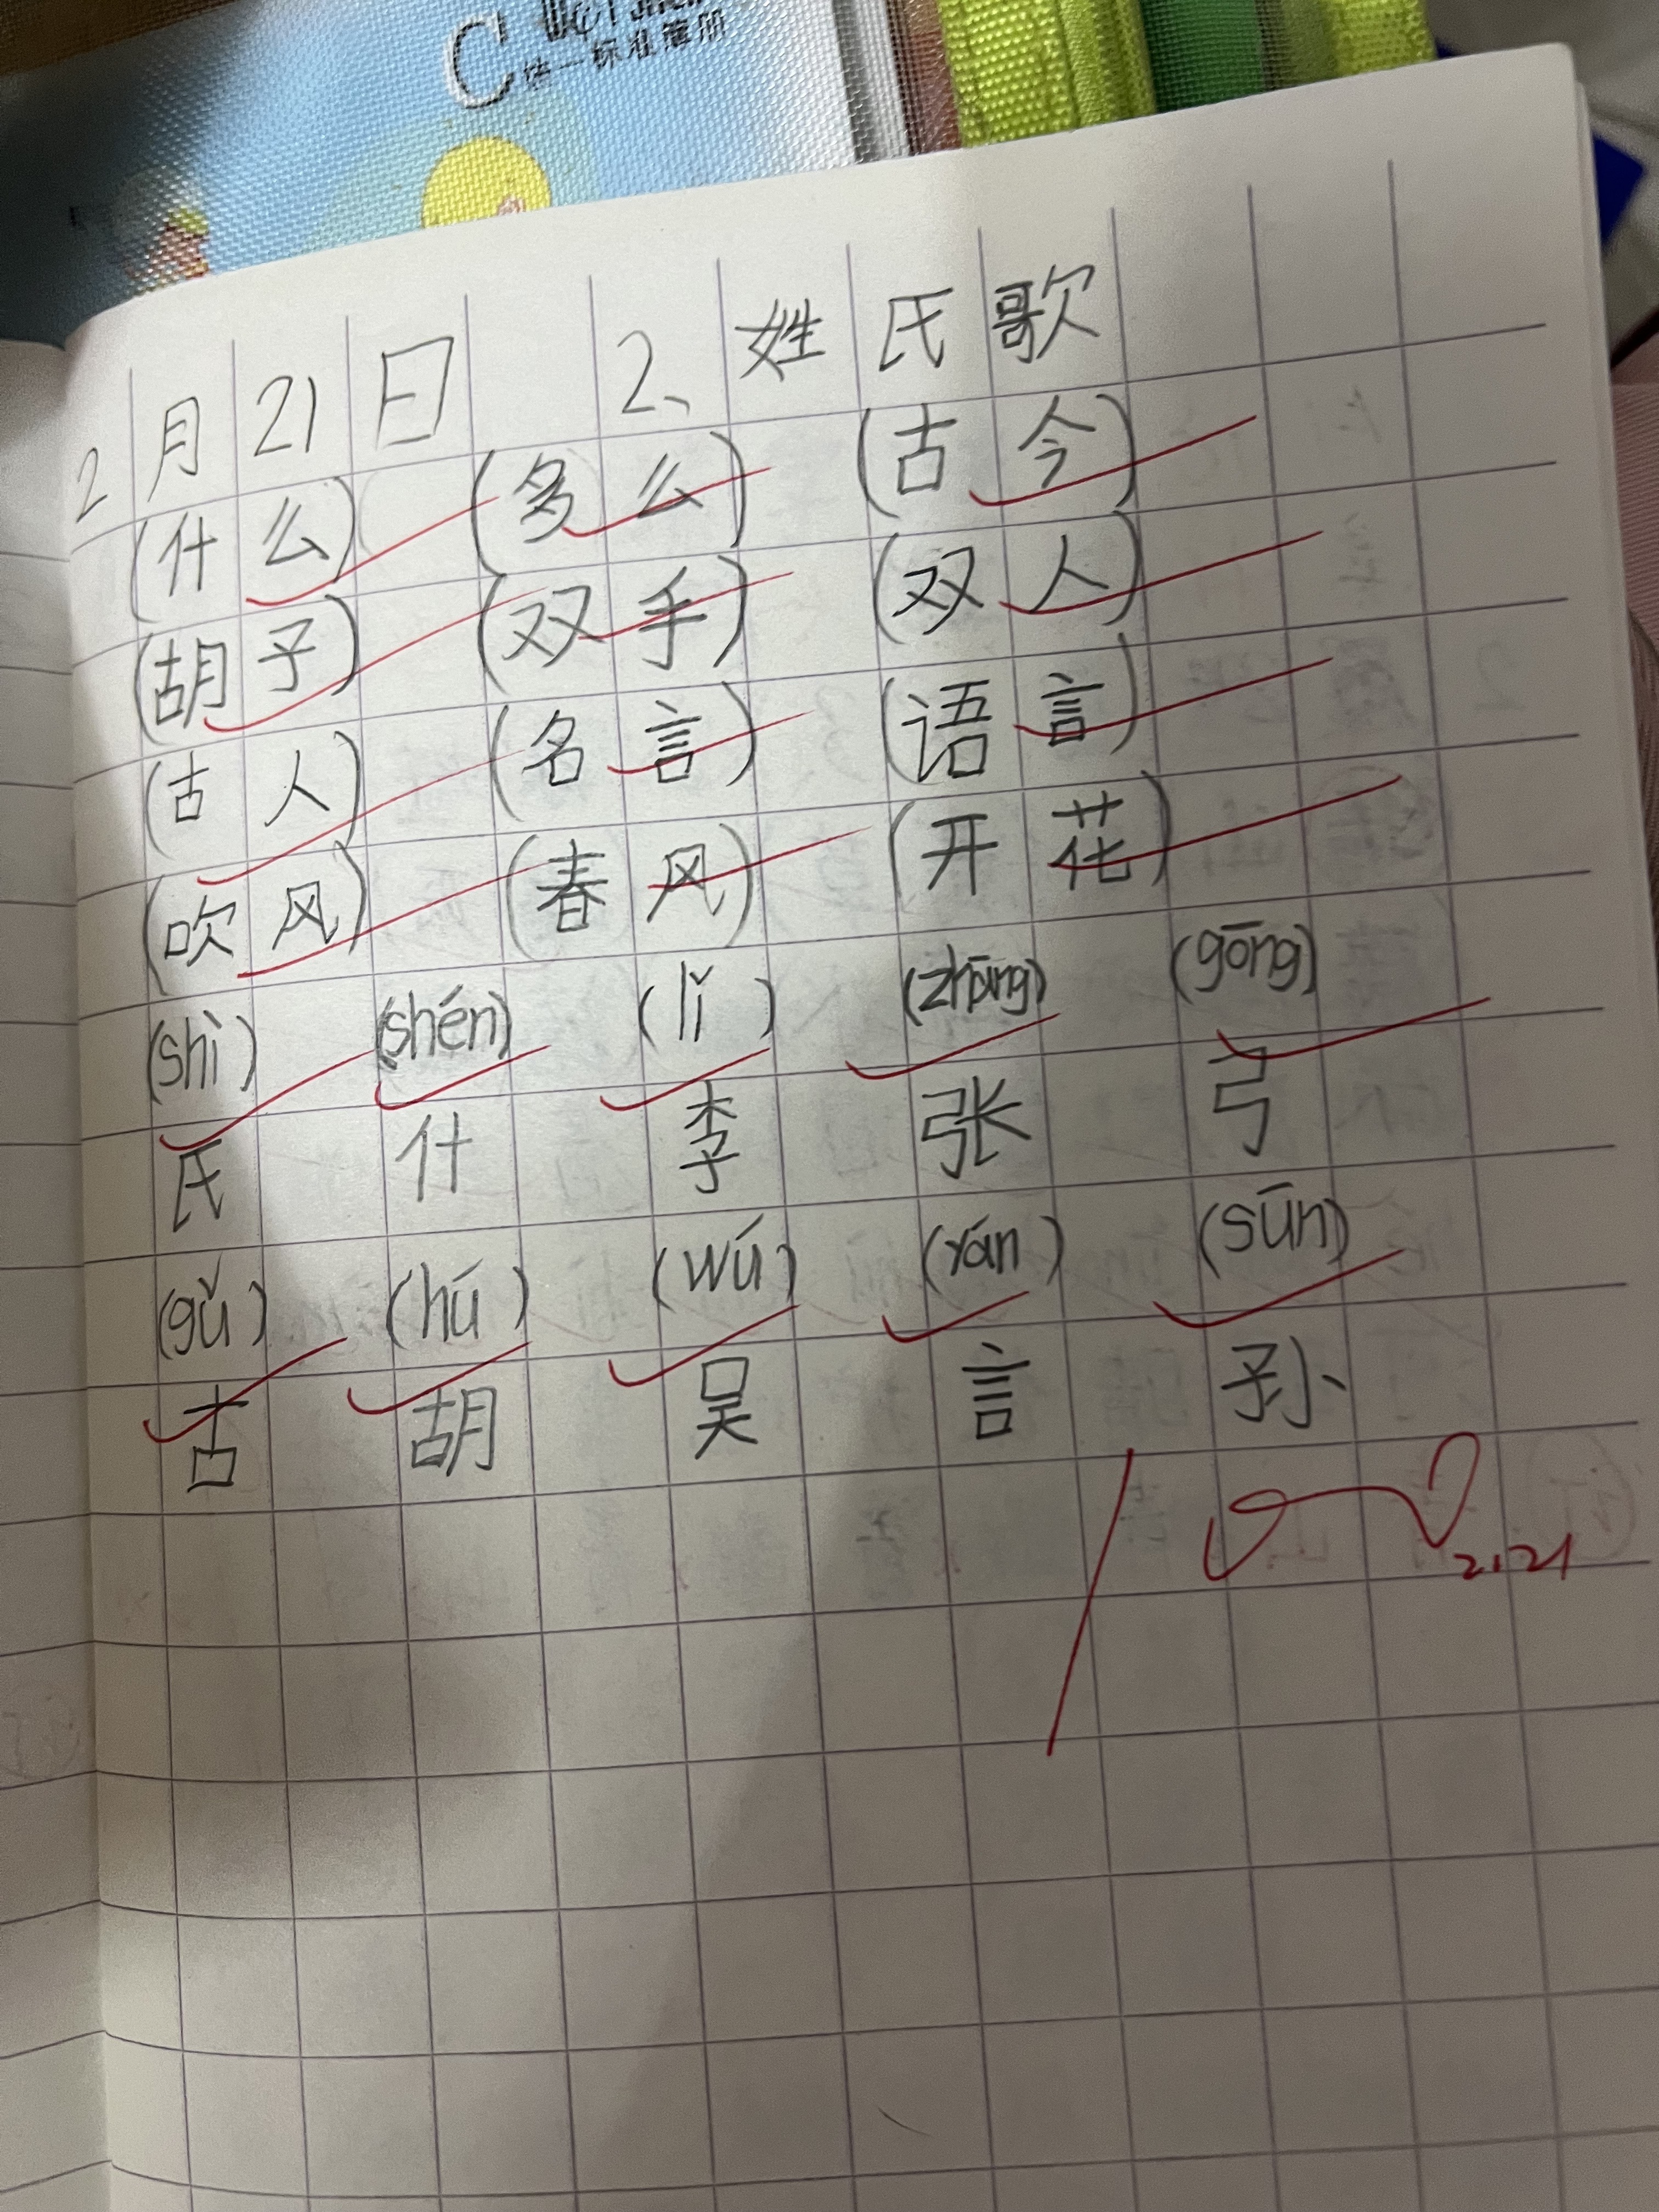 标准簿册
2月21日 2、姓氏歌
(什么) (多么) (古今)
(胡子) (双手) (双人)
(古人) (名言) (语言)
(吹风) (春风) (开花)
(shì) (shén) (lǐ) (zhāng) (gōng)
氏 什 李 张 弓
(gǔ) (hú) (wú) (yán) (sūn)
古 胡 吴 言 孙
100
2.21